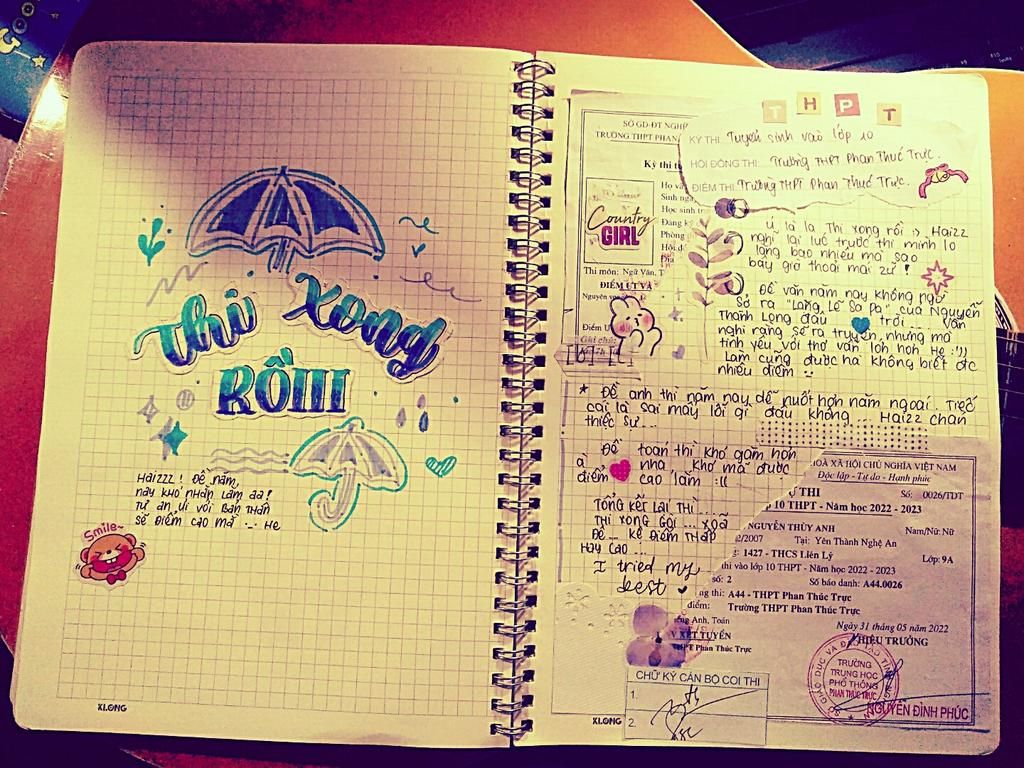 Thi Xong
RỒIII
Haizzz ! Đề năm
nay khó nhằn lắm aa!
Tự an ủi với bản thân
sẽ điểm cao mà He
Smile~
KLONG
T H P T
SỞ GD-ĐT NGH
TRƯỜNG THPT PHAN
KỲ THI Tuyển sinh vào lớp 10
HỘI ĐỒNG THI Trường THPT Phan Thúc Trực.
ĐIỂM THI Trường THPT Phan Thúc Trực.
Kỳ thi t
Họ và
Sinh ngà
Học sinh t
Đăng k
Phòng
Hội đ
Địa
Country
GIRL
Thi môn: Ngữ Văn, T
ĐIỂM ƯT VÀ
Nguyện vọ
Điểm Ư
Ghi chú
Ú là la Thi xong rồi :> Haizz
nghĩ lại lúc trước thi mình lo
lắng bao nhiêu mà sao
bây giờ thoải mái zữ !
Đề văn năm nay không ngờ
Sở ra "Lặng Lẽ Sa Pa" của Nguyễn
Thành Long đâu trời ... Vẫn
nghĩ rằng sẽ ra truyện, nhưng mà
tình yêu với thơ vẫn lớn hơn He :))
Làm cũng được hà không biết đc
nhiêu điểm
* Đề anh thì năm nay dễ nuốt hơn năm ngoái. Tiếc
cái là sai mấy lỗi gì đâu không ... Haizz chán
thiệc sự ...
Đề toán thì khó gặm hơn
à nha, khó mà được
điểm cao lắm :((
TỔNG KẾT LẠI THÌ ...
THI XONG GÒI ... XOÃ
ĐÊ ... KỆ ĐIỂM THẤP
HAY CAO ...
I tried my
best
HOÀ XÃ HỘI CHỦ NGHĨA VIỆT NAM
Độc lập - Tự do - Hạnh phúc
Ự THI Số: 0026/TDT
10 THPT - Năm học 2022 - 2023
NGUYỄN THÙY ANH Nam/Nữ: Nữ
/2007 Tại: Yên Thành Nghệ An
: 1427 - THCS Liên Lý Lớp: 9A
thi vào lớp 10 THPT - Năm học 2022 - 2023
số: 2 Số báo danh: A44.0026
ng thi: A44 - THPT Phan Thúc Trực
điểm: Trường THPT Phan Thúc Trực
iếng Anh, Toán
Ngày 31 tháng 05 năm 2022
V XÉT TUYỂN HIỆU TRƯỞNG
THPT Phan Thúc Trực
SỞ GIÁO DỤC VÀ ĐÀO TẠO TỈNH
TRƯỜNG
TRUNG HỌC
PHỔ THÔNG
PHAN THÚC TRỰC
NGUYỄN ĐÌNH PHÚC
CHỮ KÝ CÁN BỘ COI THI
1.
2.
KLONG